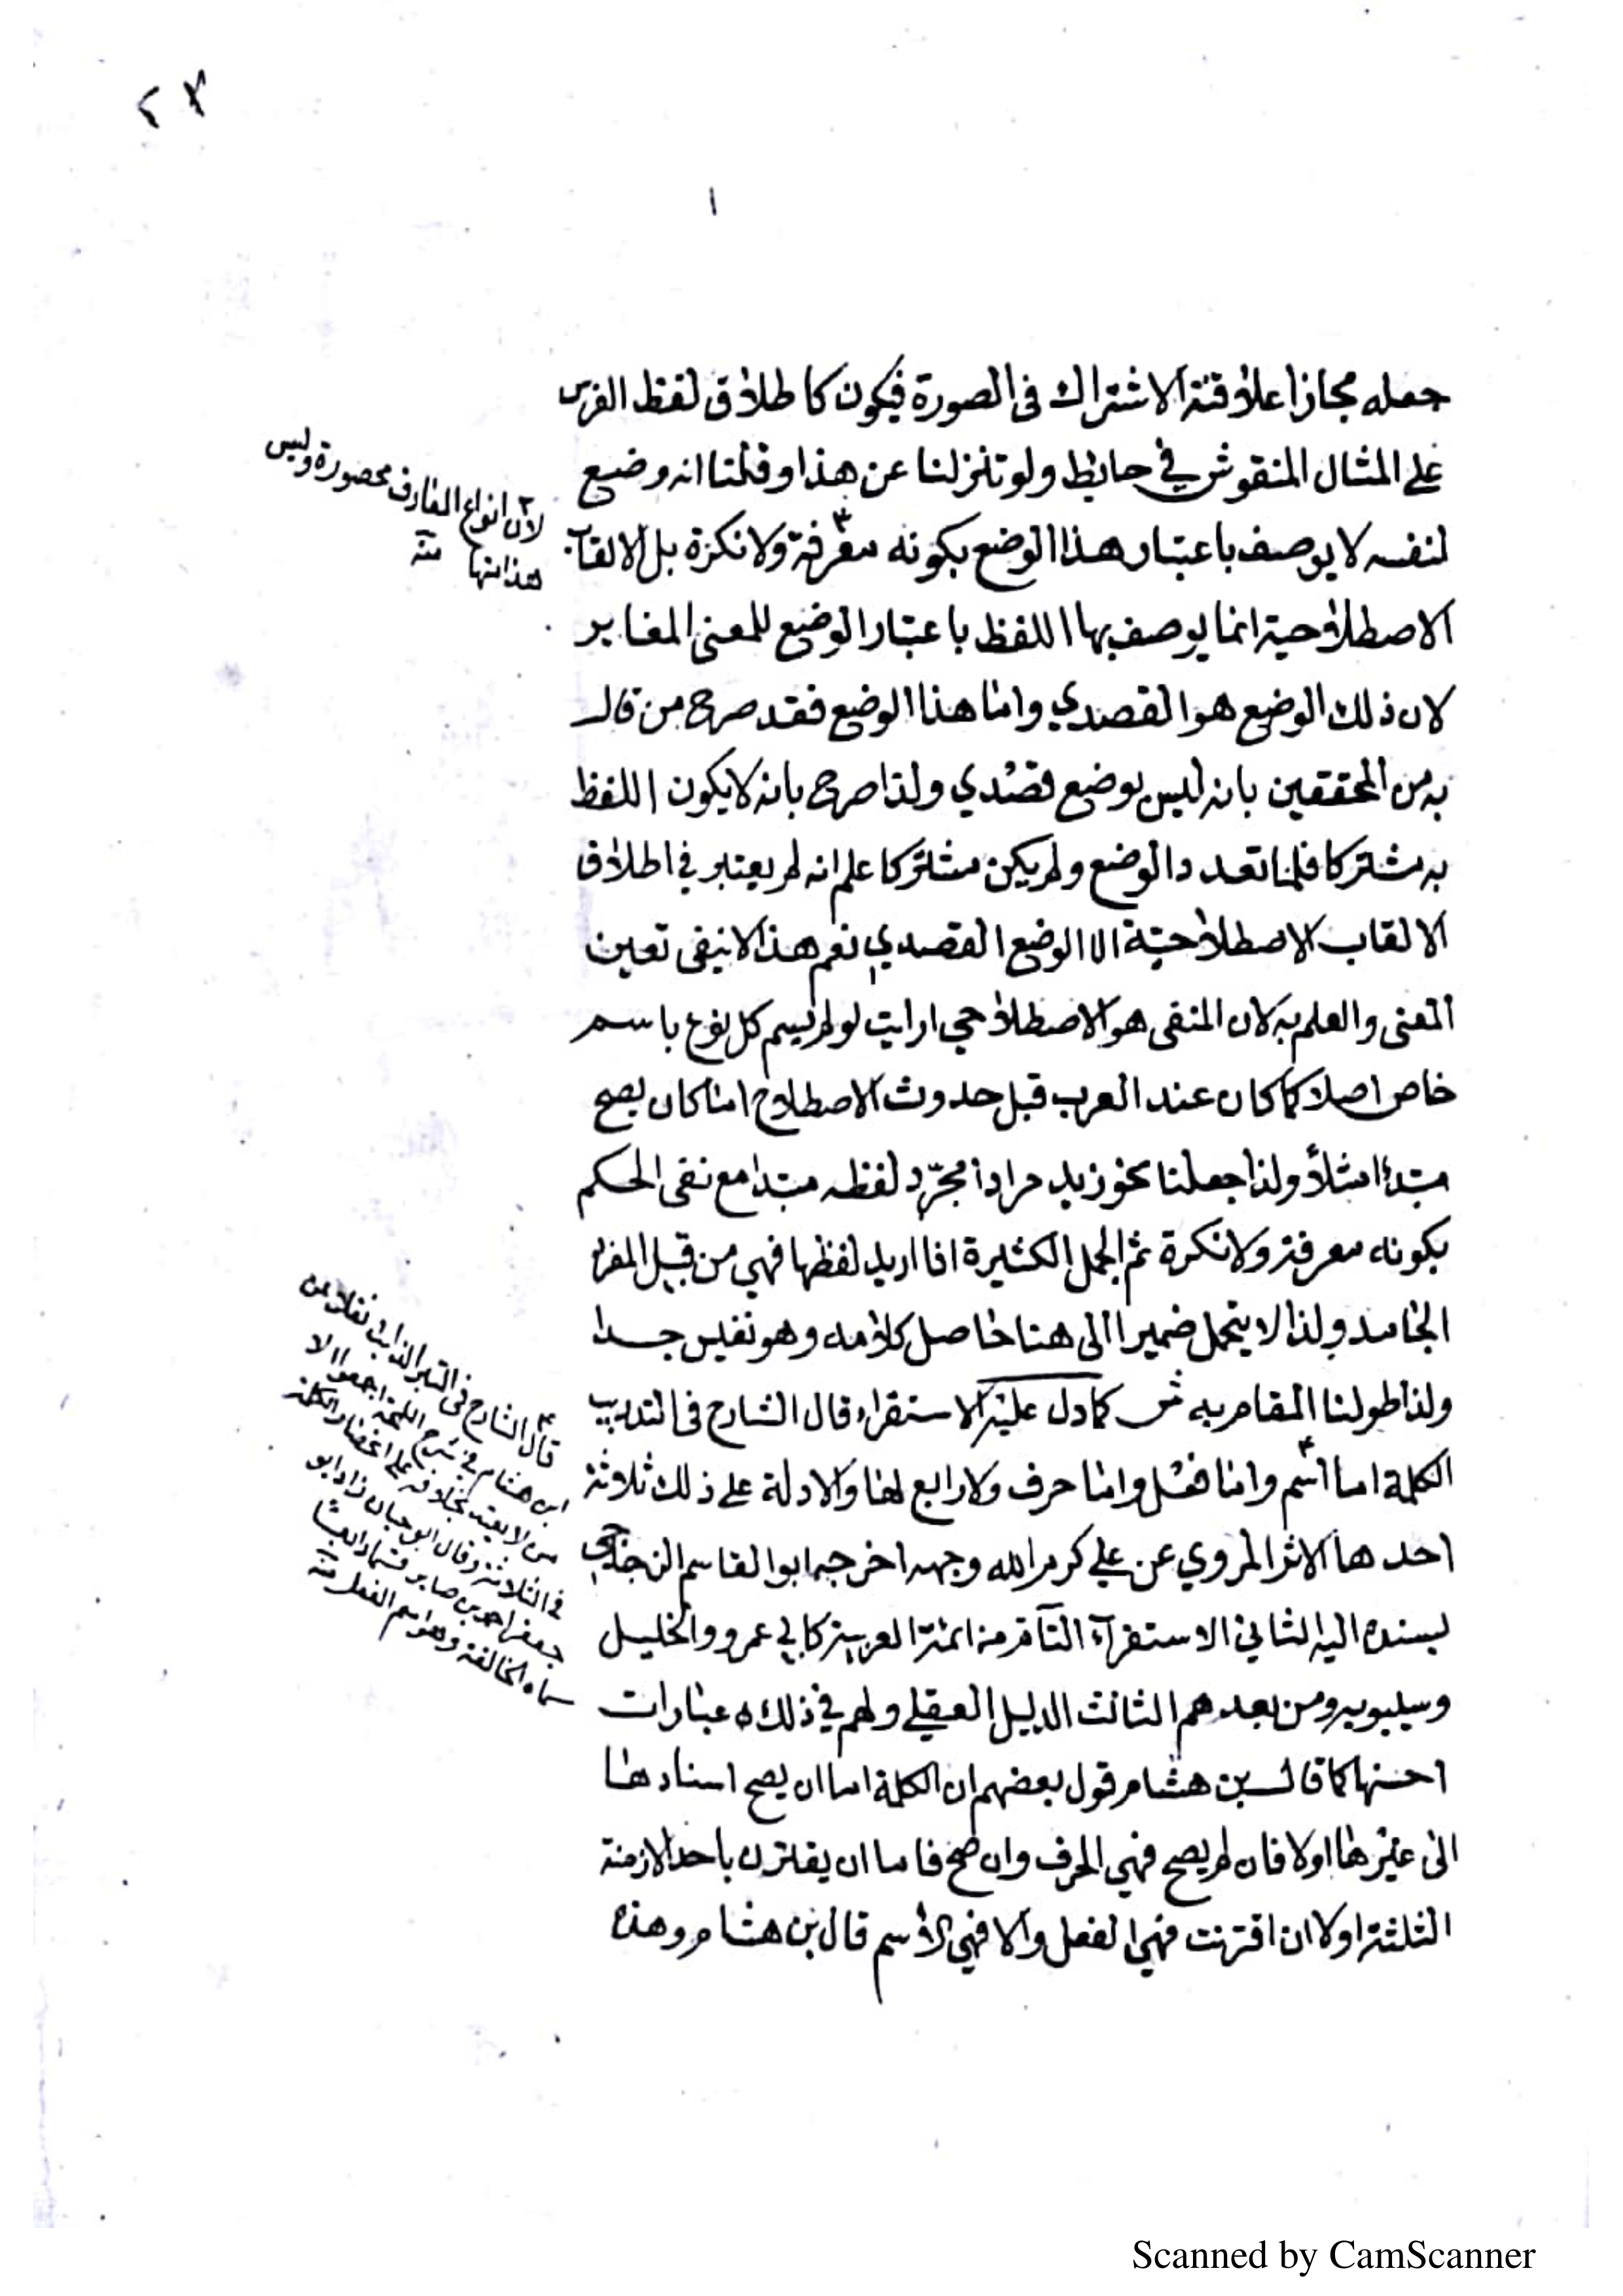 ٢٧
١
جعله مجازا علاقته الاشتراك فى الصورة فيكون كاطلاق لفظ الفرس
على المثال المنقوش في حايط ولو تنزلنا عن هذا وقلنا انه وضع
لنفسه لا يوصف باعتبار هذا الوضع بكونه معرفة ولا نكرة بل الالقاب
الاصطلاحية انما يوصف بها اللفظ باعتبار الوضع للمعنى المغاير
لان ذلك الوضع هو القصدي واما هذا الوضع فقد صرح من قال
به من المحققين بانه ليس بوضع قصدي ولذا صرح بانه لا يكون اللفظ
به مشتركا فلما تعدد الوضع ولم يكن مشتركا علم انه لم يعتبر في اطلاق
الالقاب الاصطلاحية الا الوضع القصدي نعم هذا لا ينفى تعين
المعنى والعلم به لان المنفى هو الاصطلاحي ارايت لو لم يسم كل نوع باسم
خاص اصلا كما كان عند العرب قبل حدوث الاصطلاح اما كان يصح
مبتدءا مثلاً ولذا جعلنا نحو زيد مرادا مجرّد لفظه مبتدا مع نفى الحكم
بكونه معرفة ولا نكرة ثم الجمل الكثيرة اذا اريد لفظها فهي من قبيل المفرد
الجامد ولذا لا يتحمل ضميرا الى هنا حاصل كلامه وهو نفيس جدا
ولذا طولنا المقام به ش كما دل عليه الاستقراء قال الشارح فى التدريب
الكلمة اما اسم واما فعل واما حرف ولا رابع لها والادلة على ذلك ثلاثة
احدها الاثر المروي عن علي كرم الله وجهه اخرجه ابو القاسم الزجاجي
بسنده اليه الثاني الاستقرآء التآم من ائمة العربية كابي عمرو والخليل
وسيبويه ومن بعدهم الثالث الدليل العقلي ولهم في ذلك عبارات
احسنها كما قال بن هشام قول بعضهم ان الكلمة اما ان يصح اسنادها
الى غيرها اولا فان لم يصح فهي الحرف وان صح فاما ان يقترن باحد الازمنة
الثلثة اولا ان اقترنت فهي الفعل والا فهي الاسم قال بن هشام وهذه
٢ لان انواع المعارف محصورة وليس
هذا منها منه
٣ قال الشارح فى التبر الذائب نقلا عن
ابن هشام في شرح اللمحة اجمعوا الا
من لا يعتد بخلافه على انحصار الكلمة
في الثلاثة وقال ابو حيان زاد ابو
جعفر احمد بن صابر قسما رابعا
سماه الخالفة وهو اسم الفعل منه
Scanned by CamScanner